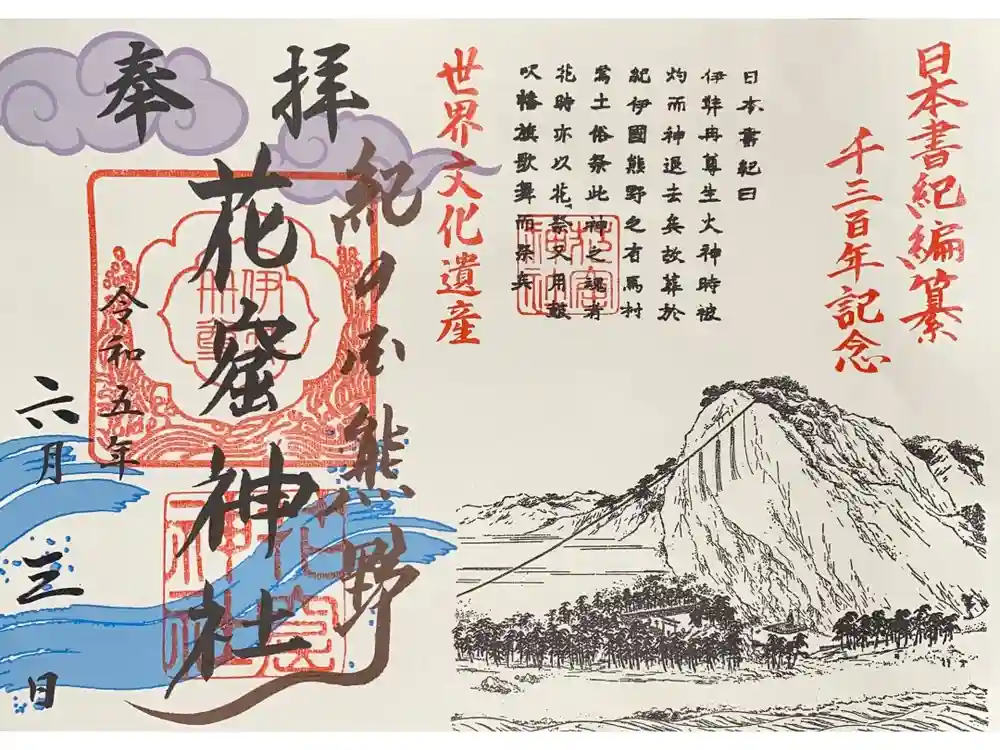 日本書紀編纂
千三百年記念
日本書紀曰
伊弉冉尊生火神時被
灼而神退去矣故葬於
紀伊國熊野之有馬村
焉土俗祭此神之魂者
花時亦以花祭又用鼓
吹幡旗歌舞而祭矣
花窟
神社
世界文化遺産
奉拝
紀の国熊野
花窟神社
伊弉
冉尊
花窟
神社
令和五年
六月三日